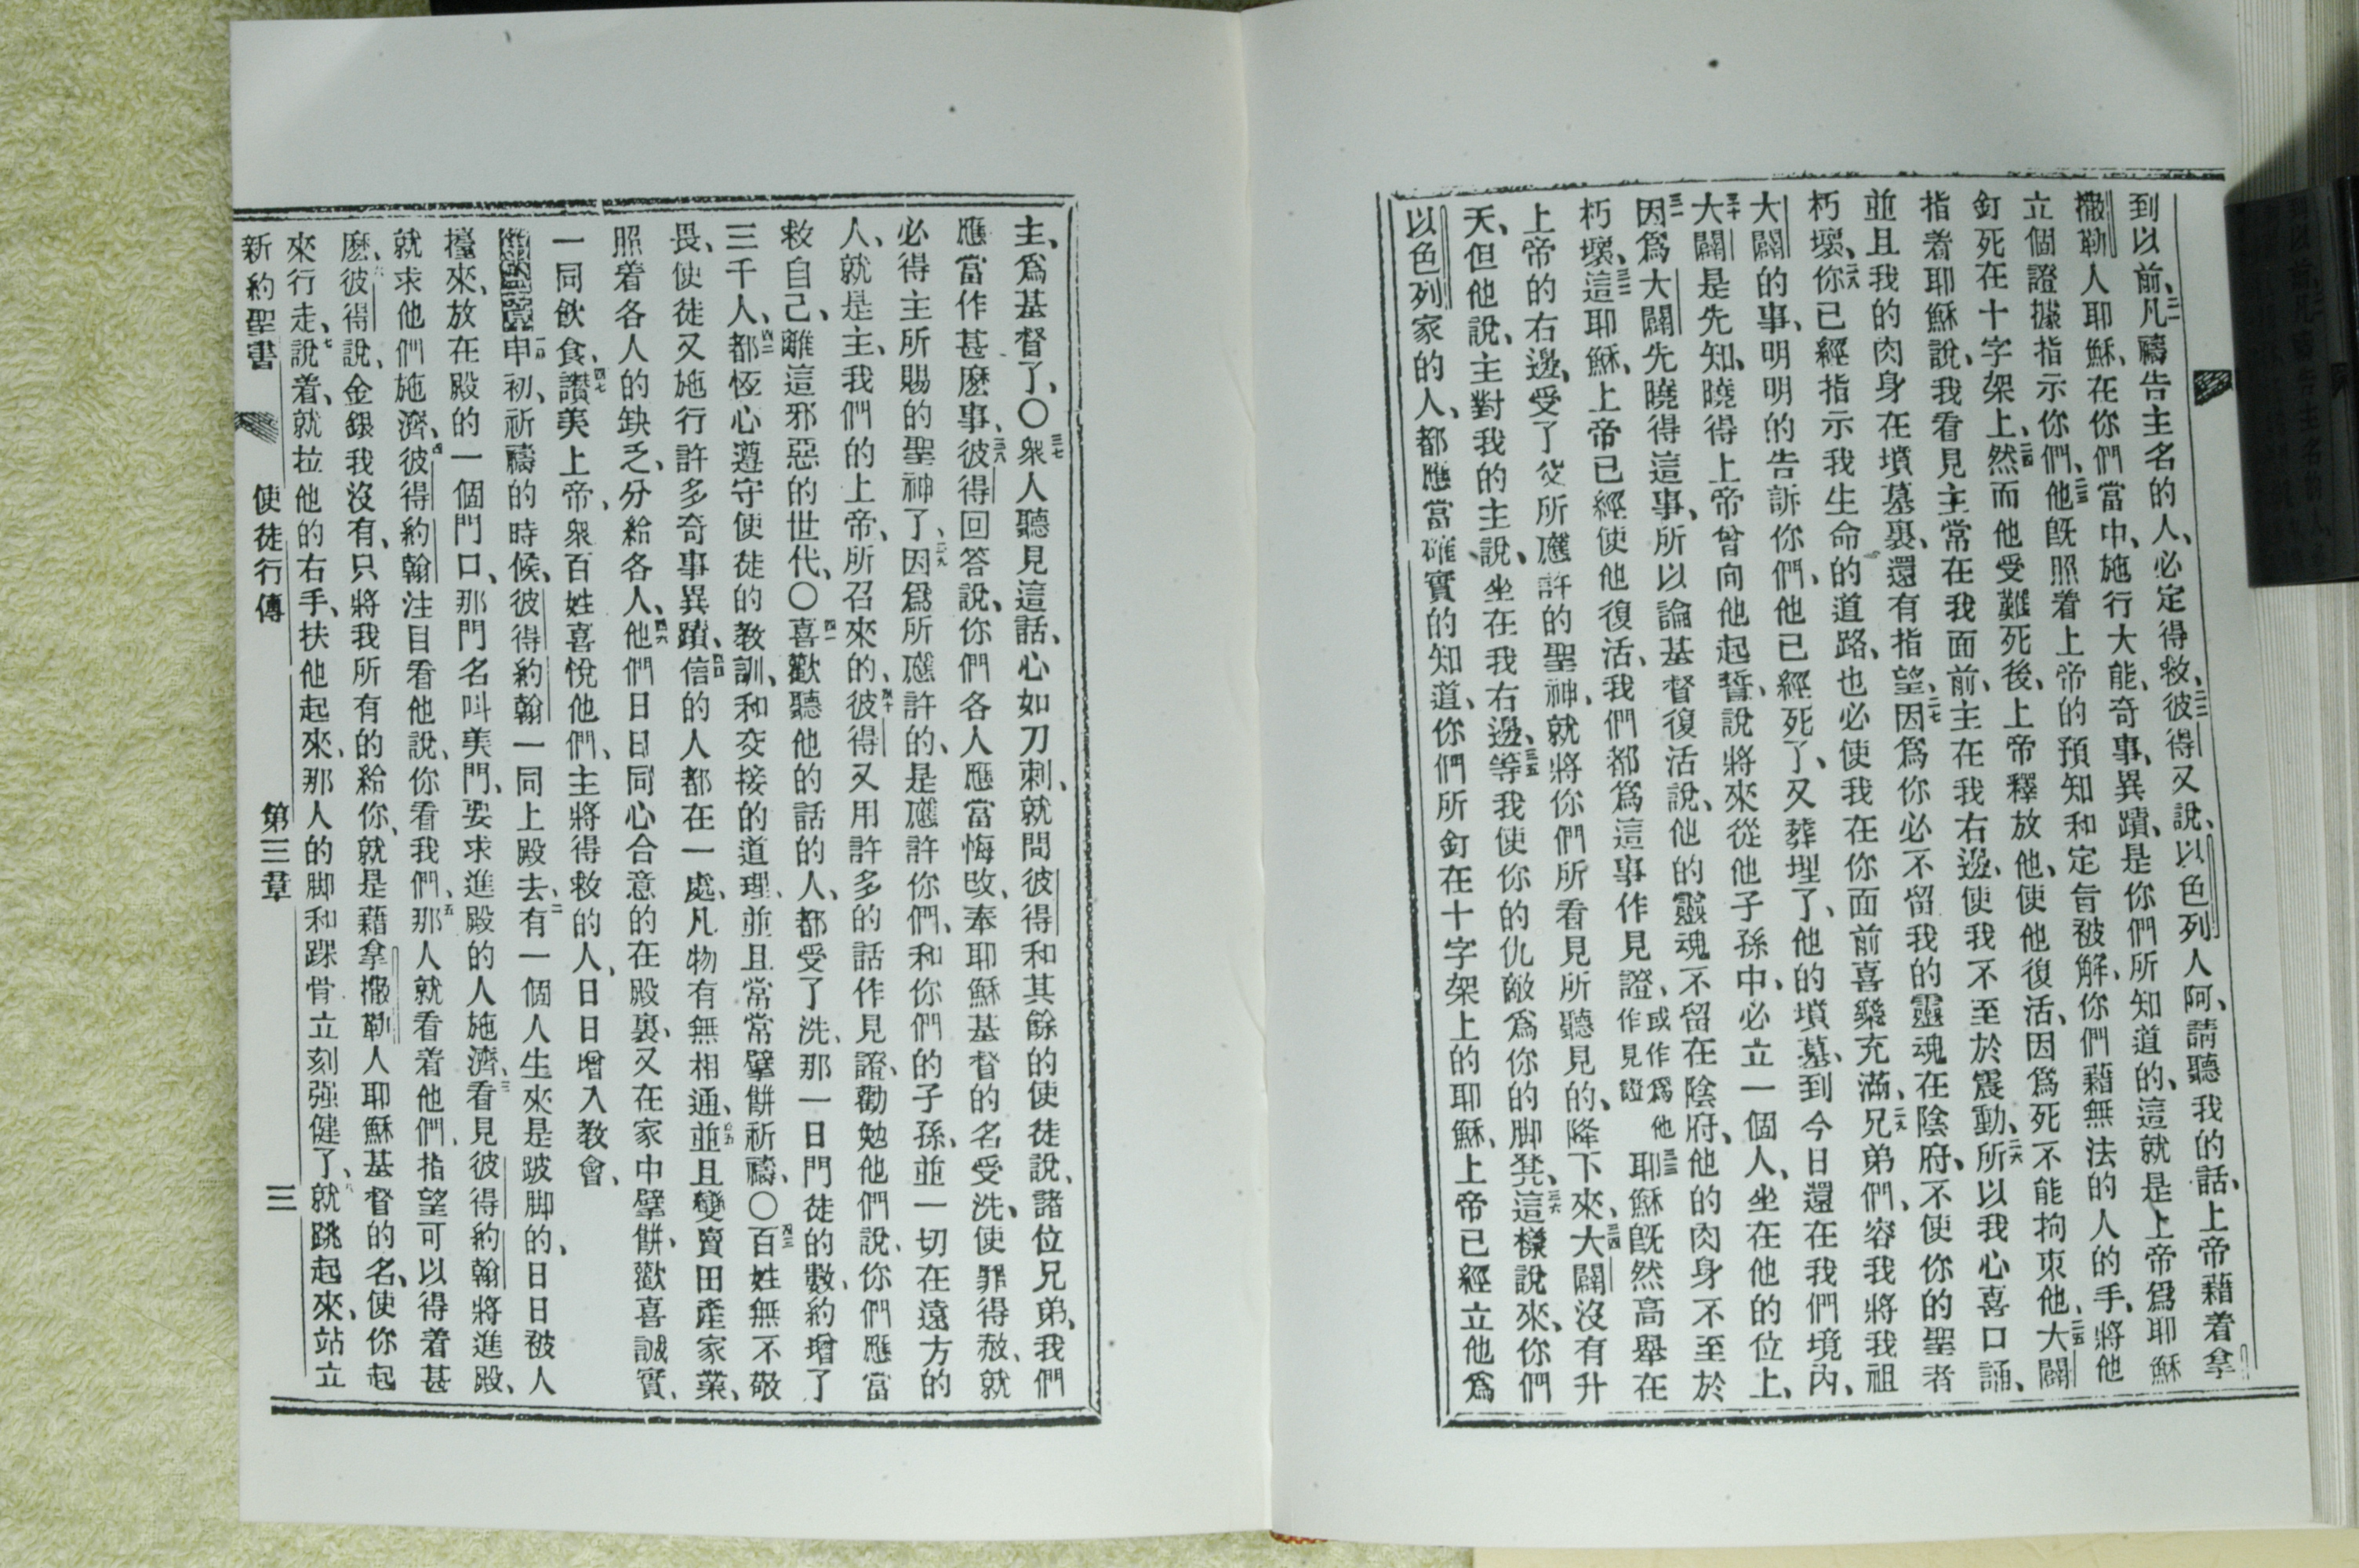 到以前、二一凡禱告主名的人、必定得救、二二彼得又說、以色列人阿、請聽我的話、上帝藉着拿
撒勒人耶穌、在你們當中、施行大能、奇事、異蹟、是你們所知道的、這就是上帝爲耶穌
立個證據指示你們、二三他旣照着上帝的預知和定旨被解、你們藉無法的人的手、將他
釘死在十字架上、二四然而他受難死後、上帝釋放他、使他復活、因爲死不能拘束他、二五大闢
指着耶穌說、我看見主常在我面前、主在我右邊、使我不至於震動、二六所以我心喜口誦、
並且我的肉身在墳墓裏、還有指望、二七因爲你必不留我的靈魂在陰府、不使你的聖者
朽壞、二八你已經指示我生命的道路、也必使我在你面前喜樂充滿、二九兄弟們、容我將我祖
大闢的事、明明的告訴你們、他已經死了、又葬埋了、他的墳墓、到今日還在我們境內、
三十大闢是先知、曉得上帝曾向他起誓、說將來從他子孫中、必立一個人、坐在他的位上、
三一因爲大闢先曉得這事、所以論基督復活說、他的靈魂不留在陰府、他的肉身不至於
朽壞、三二這耶穌、上帝已經使他復活、我們都爲這事作見證、或作爲他作見證三三耶穌旣然高舉在
上帝的右邊、受了父所應許的聖神、就將你們所看見所聽見的、降下來、三四大闢沒有升
天、但他說、主對我的主說、坐在我右邊、三五等我使你的仇敵爲你的脚凳、三六這樣說來、你們
以色列家的人、都應當確實的知道、你們所釘在十字架上的耶穌、上帝已經立他爲
主、爲基督了、〇三七衆人聽見這話、心如刀刺、就問彼得和其餘的使徒說、諸位兄弟、我們
應當作甚麽事、三八彼得回答說、你們各人應當悔改、奉耶穌基督的名受洗、使罪得赦、就
必得主所賜的聖神了、三九因爲所應許的、是應許你們、和你們的子孫、並一切在遠方的
人、就是主、我們的上帝、所召來的、四十彼得又用許多的話作見證、勸勉他們說、你們應當
救自己、離這邪惡的世代、〇四一喜歡聽他的話的人、都受了洗、那一日門徒的數、約增了
三千人、四二都恆心遵守使徒的教訓、和交接的道理、並且常常擘餅祈禱、〇四三百姓無不敬
畏、使徒又施行許多奇事異蹟、四四信的人都在一處、凡物有無相通、四五並且變賣田產家業、
照着各人的缺乏、分給各人、四六他們日日同心合意的在殿裏、又在家中擘餅、歡喜誠實、
一同飲食、四七讚美上帝、衆百姓喜悅他們、主將得救的人、日日增入教會、
第三章一申初、祈禱的時候、彼得約翰一同上殿去、二有一個人生來是跛脚的、日日被人
擡來、放在殿的一個門口、那門名叫美門、要求進殿的人施濟、三看見彼得約翰將進殿、
就求他們施濟、四彼得約翰注目看他說、你看我們、五那人就看着他們、指望可以得着甚
麽、六彼得說、金銀我沒有、只將我所有的給你、就是藉拿撒勒人耶穌基督的名、使你起
來行走、七說着、就拉他的右手、扶他起來、那人的脚和踝骨立刻强健了、八就跳起來、站立
新約聖書 使徒行傳 第三章 三